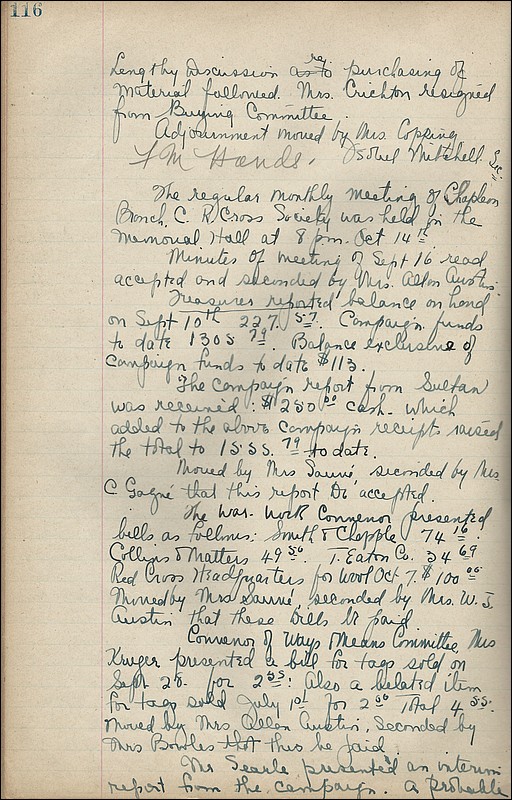 116
Lengthy Discussion as to re. purchasing of
Material followed. Mrs. Crichton resigned
from Buying Committee
Adjournment moved by Mrs Copping
F M Hands. Isobel Mitchell Sec.
The regular monthly meeting of Chapleau
Branch C. R. Cross Society was held in the
Memorial Hall at 8 p.m. Oct 14th.
Minutes of meeting of Sept 16 read
accepted and seconded by Mrs. Allan Austin.
Treasures reported balance on hand
on Sept 10th 227.57. Campaign funds
to date 1305 79. Balance exclusive of
Campaign funds to date $113.
The campaign report from Sultan
was received: $250 00 cash which
added to the above campaign receipts raised
the total to 1555. 79 to date.
Moved by Mrs Sauvé, seconded by Mrs.
C Gagné that this report be accepted.
The War Work Convenor presented
bills as follows: Smith & Chapple 74 16.
Collins & Matters 49 50. T. Eaton Co. 34 69
Red Cross Headquarters for Wool Oct 7. $100 00
Moved by Mrs Sauvé, seconded by Mrs. W. J.
Austin that these bills be paid.
Convenor of Ways & Means Committee, Mrs
Kruger presented a bill for tags sold on
Sept 20. for 2 55. Also a belated item
for tags sold July 10t for 2 00 Total 4 55.
Moved by Mrs Allan Austin, seconded by
Mrs Bowles that this be paid.
Mr Searle presented an interim
report from the campaign. A probable